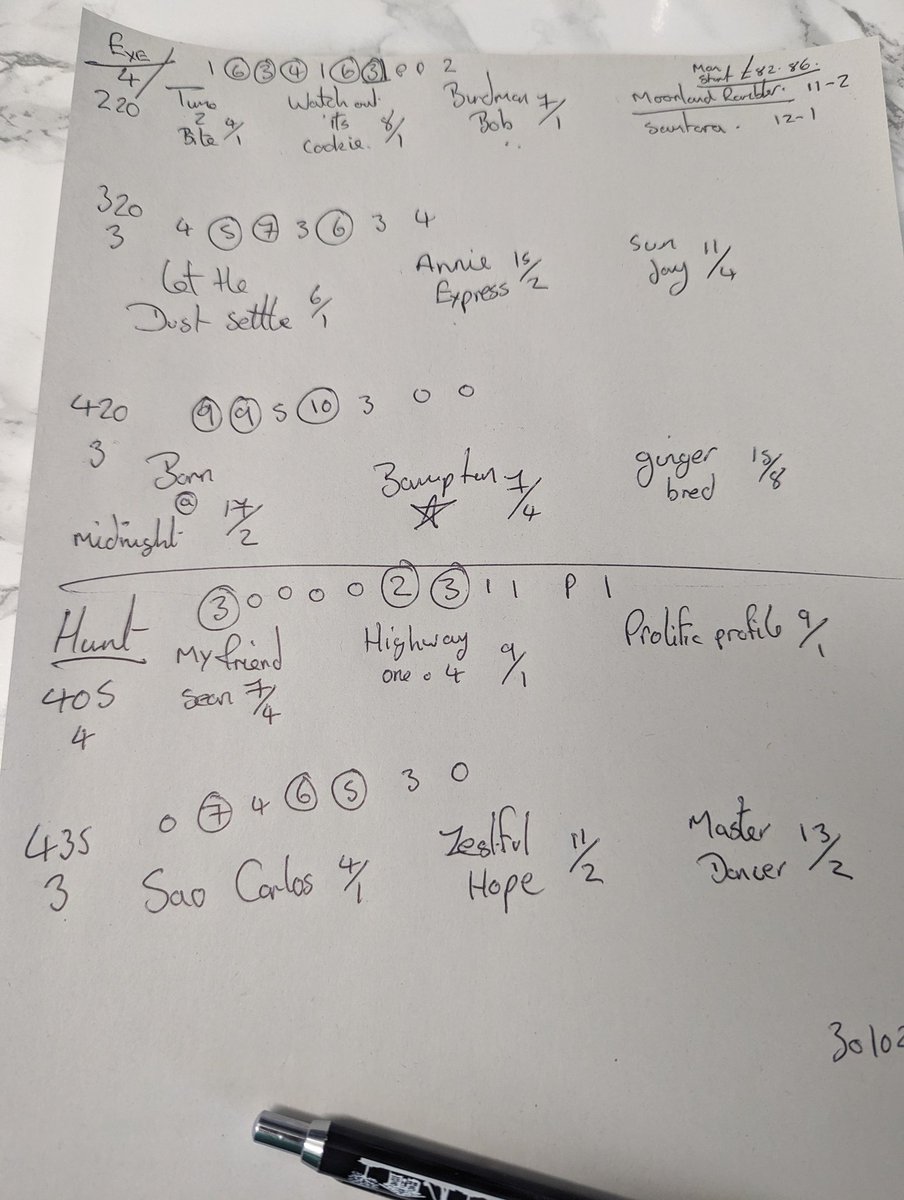 Exe
4/
220
1 6 3 4 1 6 3 0 0 2
Two
2
Bite 9/1
Watch out
its 8/1
Cookie.
Burdman 7/1
Bob
Mon
Start £82.86.
Moonland Rambler. 11-2
Santora. 12-1
320
3
4 5 7 3 6 3 4
Let the
Dust settle 6/1
Annie 15/2
Express
Sun 11/4
Jay
420
3
9 9 5 10 3 0 0
Born
@
midnight 17/2
Bampton 7/4
ginger 15/8
bred
Hunt
405
4
3 0 0 0 0 2 3 1 1 P 1
My friend
Sean 7/4
Highway
one 0 4 9/1
Prolific profile 9/1
435
3
0 7 4 6 5 3 0
Sao Carlos 4/1
Zestful 11/2
Hope
Master 13/2
Dancer